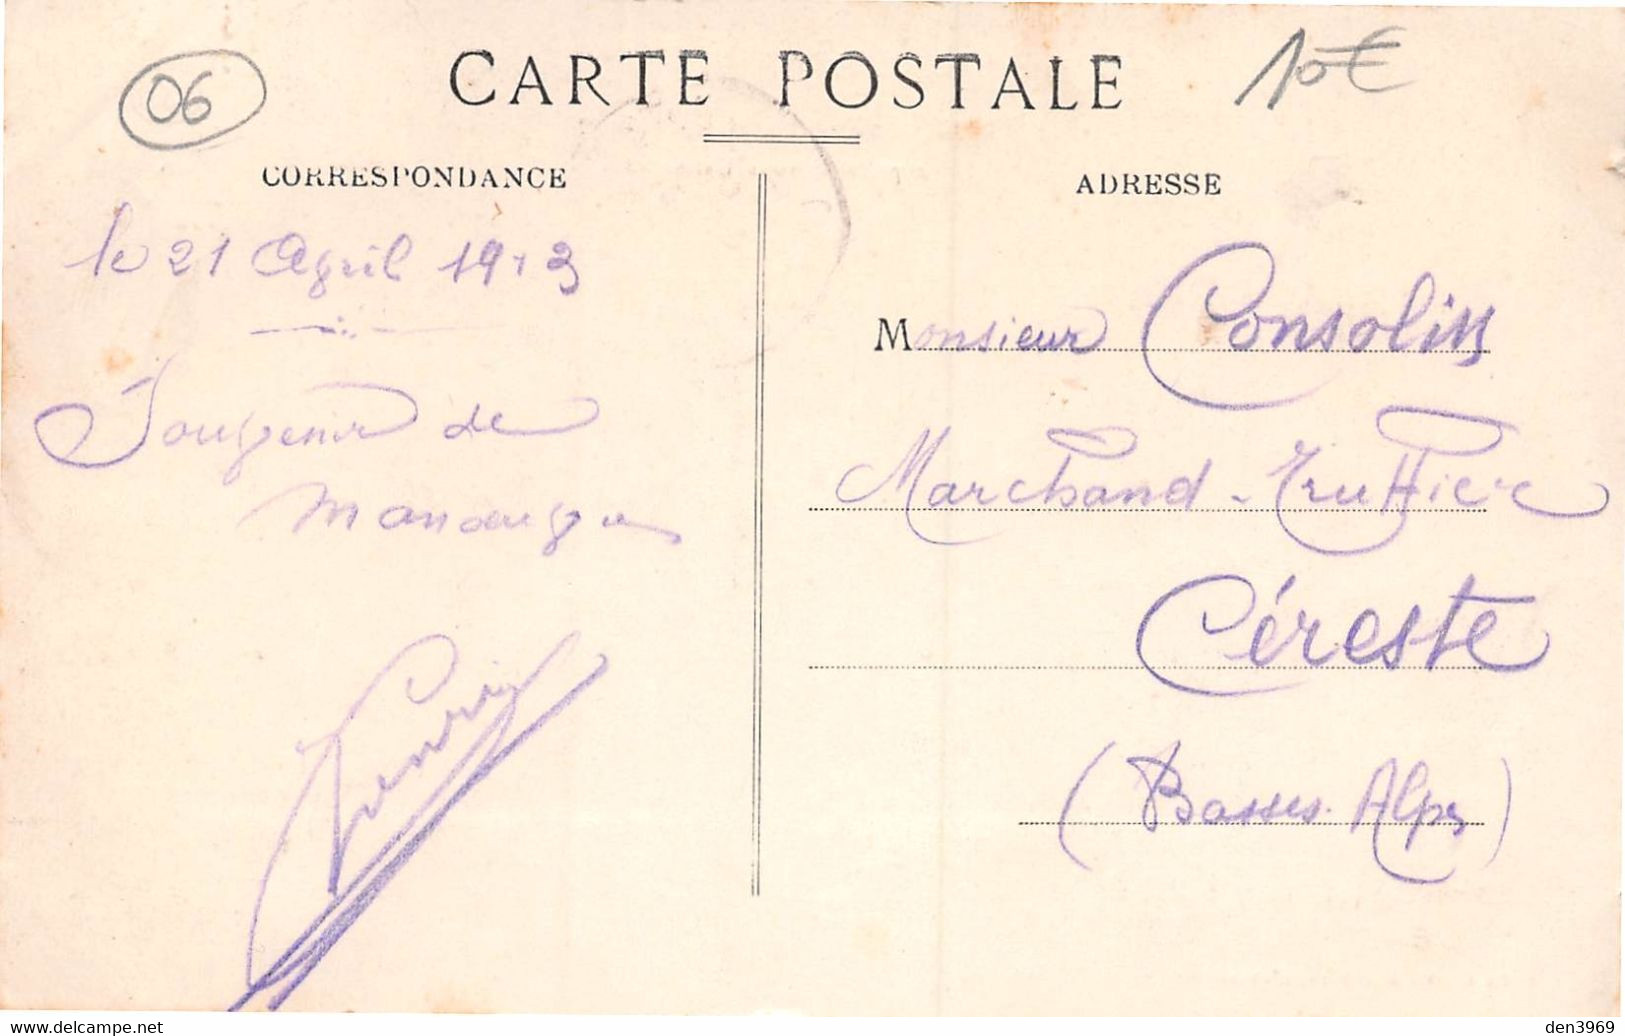 06
CARTE POSTALE
10€
CORRESPONDANCE
le 21 Avril 1913
Souvenir de
Manosque
ADRESSE
Monsieur Consolin
Marchand-Truffier
Céreste
(Basses-Alpes)
www.delcampe.net
den3969